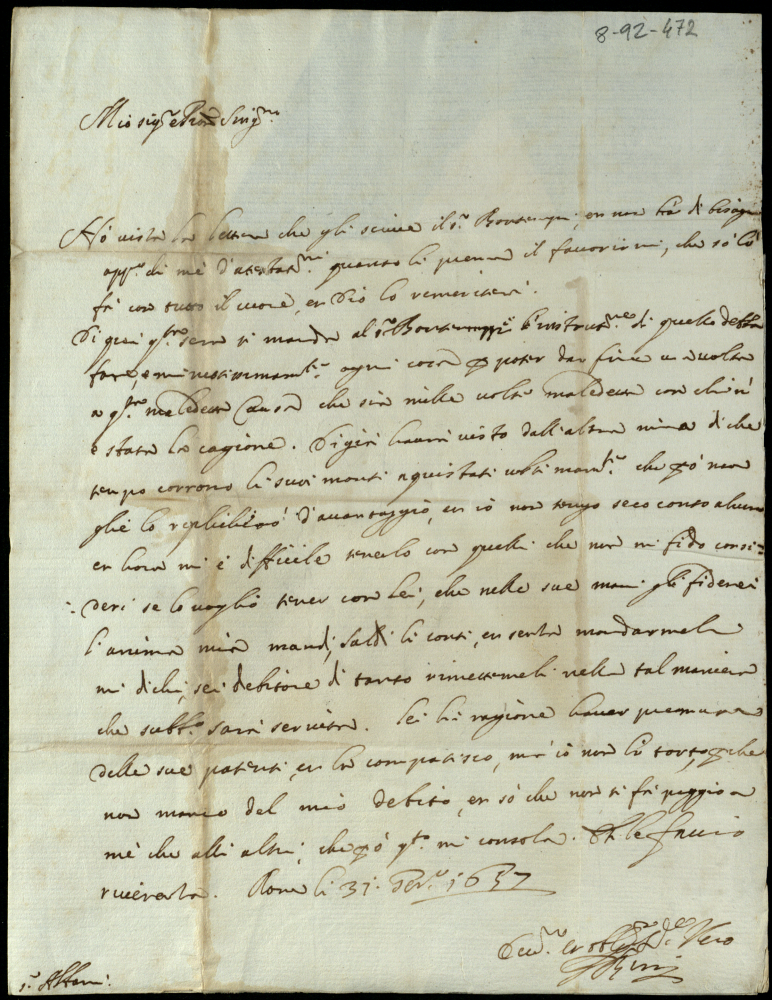 8-92-472
Mio sig.re e Pron Sing.mo
Hó vista la lettera che gli scrive il s.r Bontempi, et non hà di bisogno
app.o di mè d'attestat.ni quanto li prema il favorirmi, che só lo
fà con tutto il cuore, et Dio lo remeriterà.
Di quà q.sta sera si manda al s.r Bontempi l'instrut.ne di quello debba
fare, e mi ogni cosa p poter dar fine una volta
a q.sta maledetta causa che sia mille volte maledetta con chi n'
è stata la cagione. haverà visto dall'altra mia di che
tempo corrono li suoi monti aquistati ultimam.te che pó non
glie lo replicheró d'avantaggio, et io non tengo seco conto alcuno
et hora mi è difficile tenerlo con quelli che non mi fido consi=
=deri se lo voglio tener con Lei, che nelle sue mani gli fiderei
l'anima mia mandi, saldi li conti, et senza mandarmeli
mi dichi, sei debitore di tanto rimettemeli nella tal maniera
che subb.o sarà servita. Lei hà ragione haver premura
delle sue patenti, et la compatisco, mà io non hò torto, p che
non manco del mio debito, et só che non si fà peggio a
mè che alli altri, che pó q.to mi consola. Et le faccio
riverenza. Roma li 31 1657
Dev.mo et obblig.mo Se.re Vero
s.r Altoni